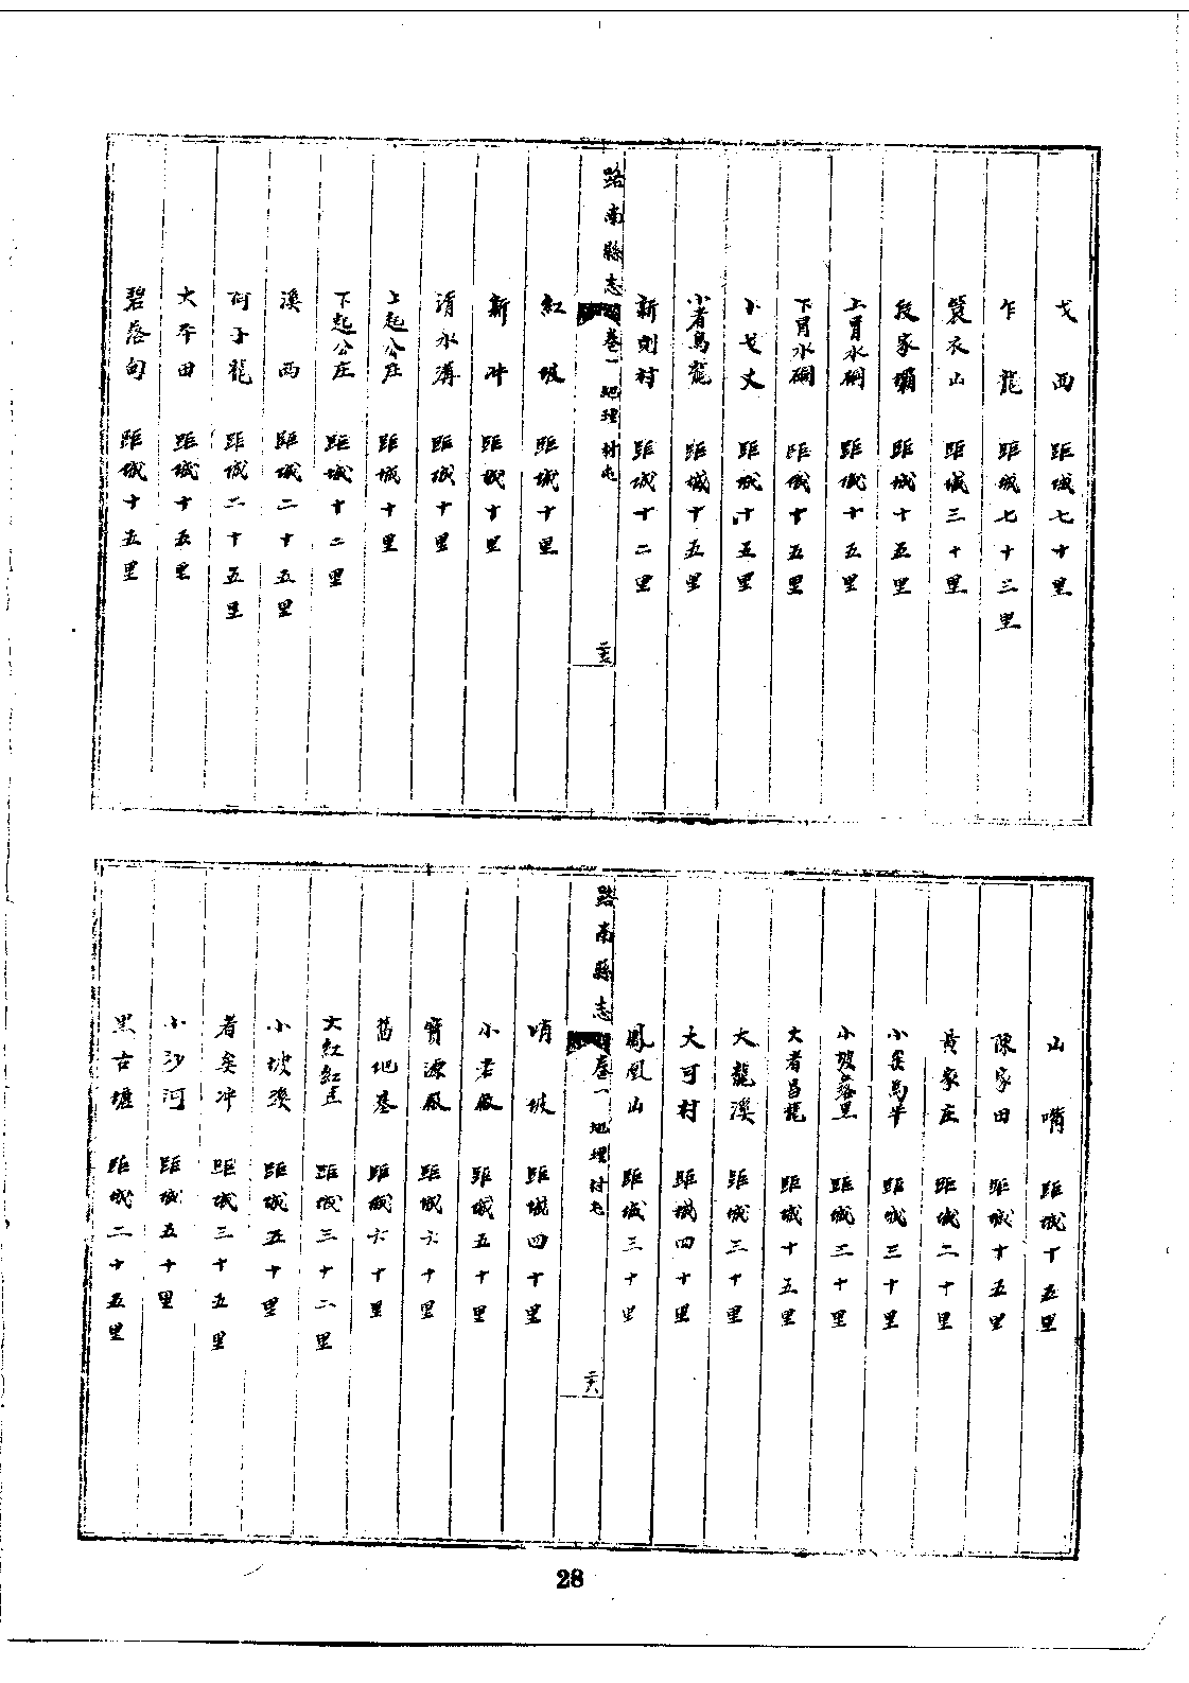 戈西 距城七十里
乍龍 距城七十三里
簑衣山 距城三十里
段家壩 距城十五里
上冐水硐 距城十五里
下冐水硐 距城十五里
小戈丈 距城十五里
小者烏龍 距城十五里
新則村 距城十二里
路南縣志 卷一 地理 村屯
紅坡 距城十里
新冲 距城十里
清水溝 距城十里
上起公庄 距城十里
下起公庄 距城十二里
溪西 距城二十五里
阿子龍 距城二十五里
大平田 距城十五里
碧落甸 距城十五里
山嘴 距城十五里
陳家田 距城十五里
黃家庄 距城二十里
小矣馬半 距城三十里
小坡落黑 距城三十里
大者昌龍 距城十五里
大龍溪 距城三十里
大可村 距城四十里
鳳凰山 距城三十里
路南縣志 卷一 地理 村屯
哨坡 距城四十里
小老廠 距城五十里
寶源廠 距城六十里
舊地基 距城六十里
大紅紅 距城三十二里
小坡溪 距城五十里
者矣冲 距城三十五里
小沙河 距城五十里
黑古塘 距城二十五里
28